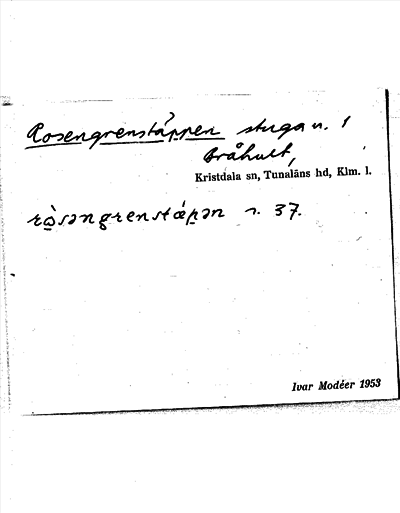 Rosengrenstäppen stugan. 1
Bråhult,
Kristdala sn, Tunaläns hd, Klm. l.
ròsəngrenstǽpən n. 37.
Ivar Modéer 1953